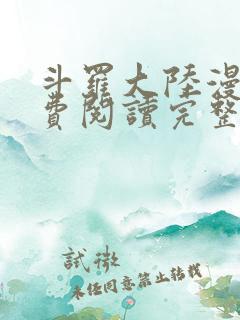 斗羅大陸漫
費閱讀完整
試徹
未任同意禁止轉載